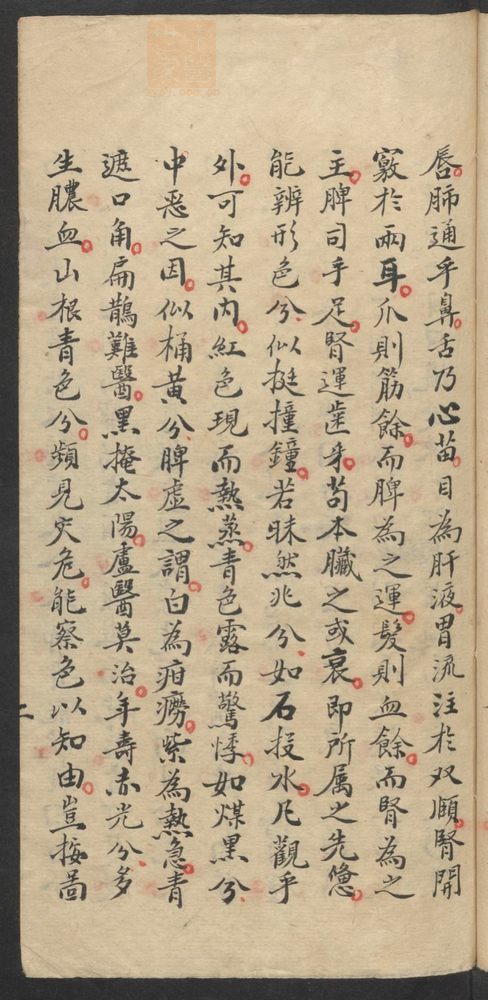 唇肺通乎鼻舌乃心苗目為肝液胃流注於双頤腎開
竅於兩耳爪則筋餘而脾為之運髮則血餘而腎為之
主脾司手足腎運歯牙苟本臟之或衰即所属之先憊
能辨形色兮似挺撞鐘若昧然兆兮如石投水凡觀乎
外可知其内紅色現而熱蒸青色露而驚悸如煤黑兮
中惡之因似桶黄兮脾虛之謂白為疳癆紫為熱急青
遮口角扁鵲難醫黑掩太陽盧醫莫治年壽赤光兮多
生膿血山根青色兮頻見灾危能察色以知由豈按啚
二